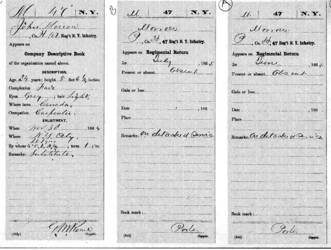 M 47 N.Y.
John Morrow
Co. H, 47 Reg't N.Y. Infantry.
Appears on
Company Descriptive Book
of the organization named above.
DESCRIPTION.
Age years; height feet inches.
Complexion Fair
Eyes Grey; hair Light
Where born Canada
Occupation Carpenter
ENLISTMENT.
When Nov 30, 186
Where N.Y. City
By whom term y'rs.
Remarks: Substitute
Copyist.
M 47 N.Y.
Morrow
P, Co. H, 47 Reg't N.Y. Infantry.
Appears on
Regimental Return
for July, 1865
Present or absent, Absent
Gain or loss,
Date , 186
Place
Remarks: On detached Service
Book mark:
Copyist.
M 47 N.Y.
Morrow
P, Co. H, 47 Reg't N.Y. Infantry.
Appears on
Regimental Return
for June, 1865
Present or absent, Absent
Gain or loss,
Date , 186
Place
Remarks: On detached Service
Book mark:
Copyist.